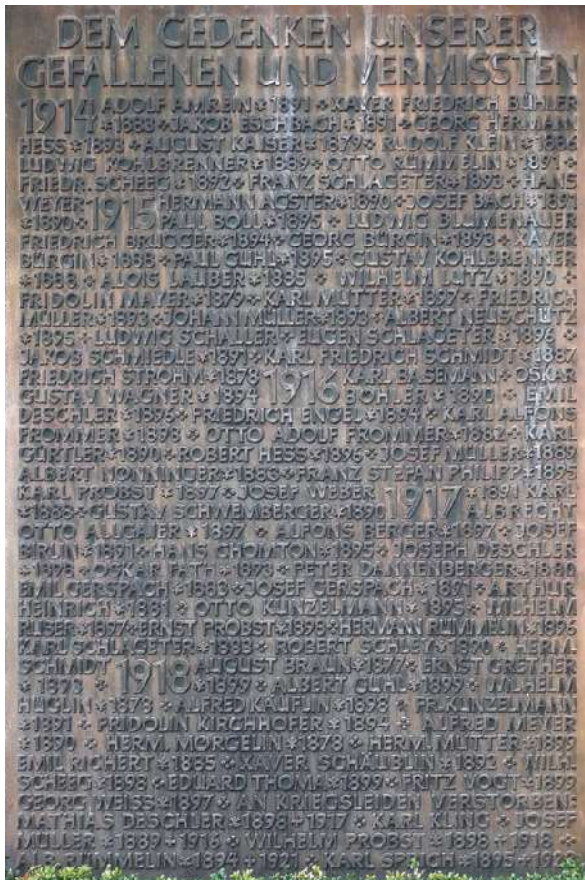 DEM GEDENKEN UNSERER
GEFALLENEN UND VERMISSTEN
1914 ADOLF AMREIN*1891 * XAVER FRIEDRICH BÜHLER
*1883 * JAKOB ESCHBACH*1891 * GEORG HERMANN
HESS*1893 * AUGUST KAISER*1879 * RUDOLF KLEIN*1886
LUDWIG KOHLBRENNER*1889 * OTTO RÜMMELIN*1891 *
FRIEDR. SCHEEG*1892 * FRANZ SCHLAGETER*1893 * HANS
WEYER 1915 HERMANN AGSTER*1890 * JOSEF BACH*1891
*1890 * PAUL BOLL*1895 * LUDWIG BLUMENAUER
FRIEDRICH BRUGGER*1894 * GEORG BÜRGIN*1893 * XAVER
BÜRGIN*1888 * PAUL GUHL*1895 * GUSTAV KOHLBRENNER
*1888 * ALOIS LAUBER*1885 * WILHELM LUTZ*1890 *
FRIDOLIN MAYER*1879 * KARL MUTTER*1897 * FRIEDRICH
MÜLLER*1893 * JOHANN MÜLLER*1893 * ALBERT NEUSCHÜTZ
*1895 * LUDWIG SCHALLER * EUGEN SCHLAGETER*1896 *
JAKOB SCHMIEDLE*1891 * KARL FRIEDRICH SCHMIDT*1887
FRIEDRICH STROHM*1878 1916 KARL BASEMANN * OSKAR
GUSTAV WAGNER*1894 BÖHLER*1890 * EMIL
DESCHLER*1896 * FRIEDRICH ENGEL*1894 * KARL ALFONS
FROMMER*1898 * OTTO ADOLF FROMMER*1882 * KARL
GÜRTLER*1890 * ROBERT HESS*1896 * JOSEF MÜLLER*1889
ALBERT NONNINGER*1883 * FRANZ STEFAN PHILIPP*1895
KARL PROBST*1897 * JOSEF WEBER 1917 *1891 KARL
*1888 * GUSTAV SCHWEMBERGER*1890 ALBRECHT
OTTO ALLGAIER*1897 * ALFONS BERGER*1897 * JOSEF
BRUN*1891 * HANS CHOMTON*1895 * JOSEPH DESCHLER
*1898 * OSKAR FATH*1893 * PETER DANNENBERGER*1880
EMIL GERSPACH*1883 * JOSEF GERSPACH*1891 * ARTHUR
HEINRICH*1881 * OTTO KÜNZELMANN*1895 * WILHELM
RUSER*1897 * ERNST PROBST*1898 * HERMANN RÜMMELIN*1896
KARL SCHLAGETER*1883 * ROBERT SCHLEY*1890 * HERM.
SCHMIDT 1918 AUGUST BRAUN*1877 * ERNST GRETHER
*1893 * *1899 * ALBERT GUHL*1899 * WILHELM
HUGLIN*1878 * ALFRED KÄUFLIN*1898 * FR. KÜNZELMANN
*1891 * FRIDOLIN KIRCHHOFER*1894 * ALFRED MEYER
*1890 * HERM. MÖRGELIN*1878 * HERM. MUTTER*1899
EMIL RICHERT*1885 * XAVER SCHÄUBLIN*1892 * WILH.
SCHEEG*1898 * EDUARD THOMA*1899 * FRITZ VOGT*1899
GEORG WEISS*1897 * AN KRIEGSLEIDEN VERSTORBEN:
MATHIAS DESCHLER*1898+1917 * KARL KLING * JOSEF
MÜLLER*1889+1916 * WILHELM PROBST*1898+1918 *
ALB. RÜMMELIN*1894+1921 * KARL SPEICH*1895+